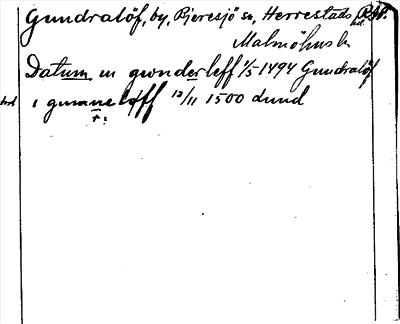 Gundralöf, by, Bjeresjö sn, Herrestads hd.
Malmöhus l.
Datum in gwnderleff 1/5 1494 Gundralöf
i gunneløff 12/11 1500 Lund